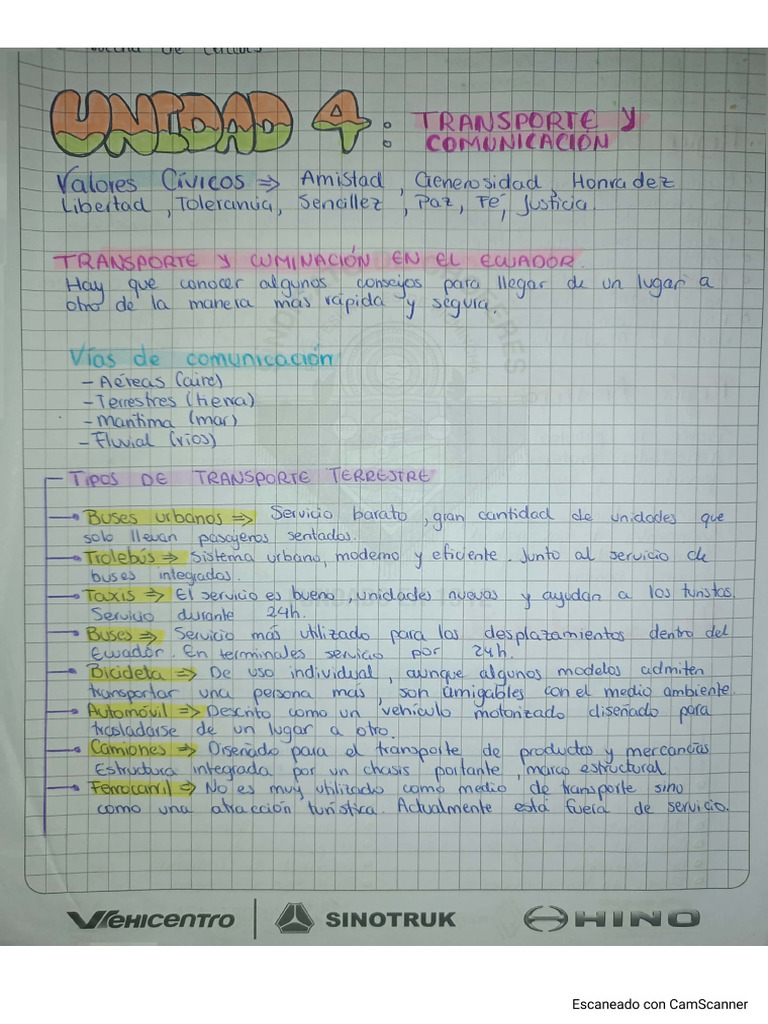 UNIDAD 4: TRANSPORTE Y
COMUNICACIÓN
Valores Cívicos => Amistad, Generosidad, Honradez
Libertad, Tolerancia, Sencillez, Paz, Fé, Justicia.
TRANSPORTE Y CUMINACIÓN EN EL ECUADOR.
Hay que conocer algunos consejos para llegar de un lugar a
otro de la manera más rápida y segura.
Vías de comunicación
- Aéreas (aire)
- Terrestres (tierra)
- Marítima (mar)
- Fluvial (ríos)
TIPOS DE TRANSPORTE TERRESTRE
Buses urbanos => Servicio barato, gran cantidad de unidades que
solo llevan pasajeros sentados.
Trolebús => Sistema urbano, moderno y eficiente. Junto al servicio de
buses integrados.
Taxis => El servicio es bueno, unidades nuevas y ayudan a los turistas.
Servicio durante 24h.
Buses => Servicio más utilizado para los desplazamientos dentro del
Ecuador. En terminales servicio por 24h.
Bicicleta => De uso individual, aunque algunos modelos admiten
transportar una persona más, son amigables con el medio ambiente.
Automóvil => Descrito como un vehículo motorizado diseñado para
trasladarse de un lugar a otro.
Camiones => Diseñado para el transporte de productos y mercancías
Estructura integrada por un chasis portante, marco estructural
Ferrocarril => No es muy utilizado como medio de transporte sino
como una atracción turística. Actualmente está fuera de servicio.
VEHICENTRO SINOTRUK HINO
Escaneado con CamScanner